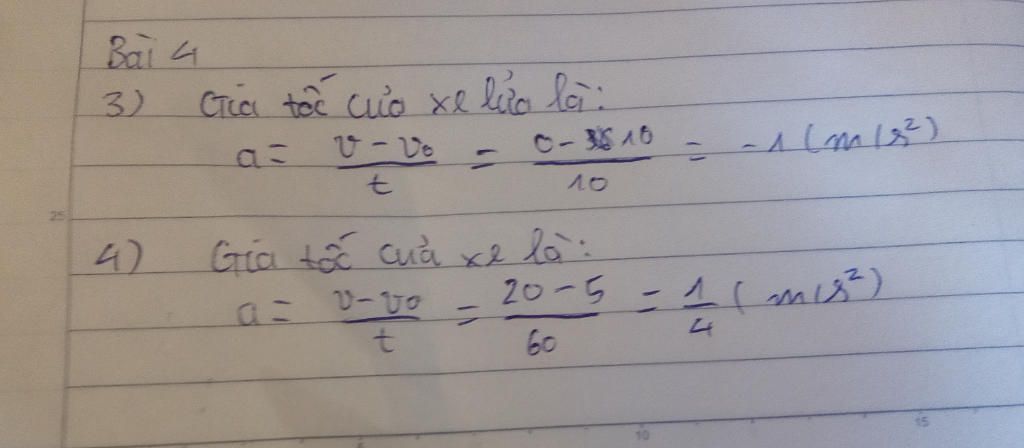 Bài 4
3) Gia tốc của xe lửa là:
a = \frac{v - v_0}{t} = \frac{0 - 10}{10} = -1 (m/s²)
25
4) Gia tốc của xe là:
a = \frac{v - v_0}{t} = \frac{20 - 5}{60} = \frac{1}{4} (m/s²)
10 15